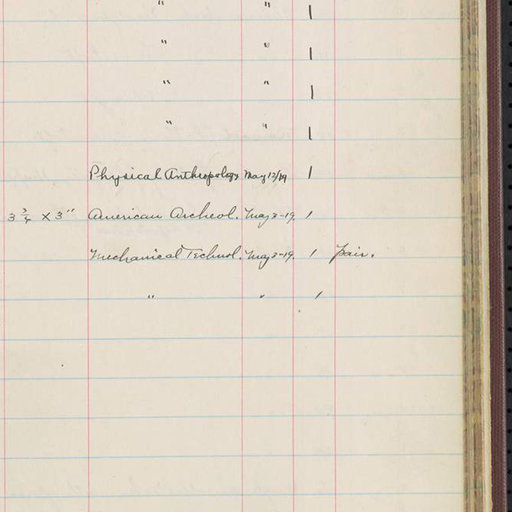 " " 1
" " 1
" " 1
" " 1
Physical Anthropology May 13/19 1
3 3/4 X 3" American Archeol. May 2-19. 1
Mechanical Technol. May 2-19. 1 pair.
" " 1